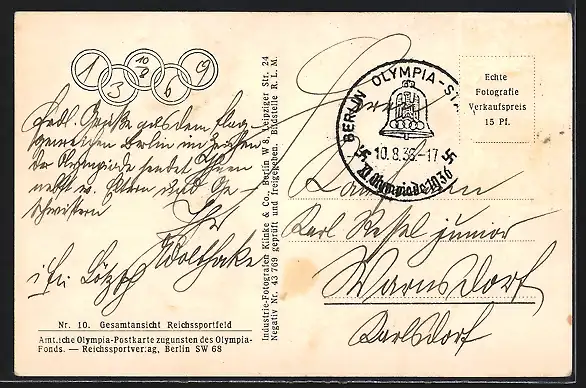 1 10/8 9
3 6
Herzl. Grüße aus dem
Berlin im Zeichen
der Olympiade sendet Ihnen
nebst w. Eltern und Ge-
schwistern
Ihr
Nr. 10. Gesamtansicht Reichssportfeld
Amtliche Olympia-Postkarte zugunsten des Olympia-
Fonds. — Reichssportverlag, Berlin SW 68
Industrie-Fotografen Klinke & Co., Berlin W 8, Leipziger Str. 24
Negativ Nr. 43 769 geprüft und freigegeben. Bildstelle R. L. M.
BERLIN OLYMPIA-ST
10.8.36.-17
XI. Olympiade 1936
Echte
Fotografie
Verkaufspreis
15 Pf.
Herrn
Karl Ressel junior
Warnsdorf
Karlsdorf